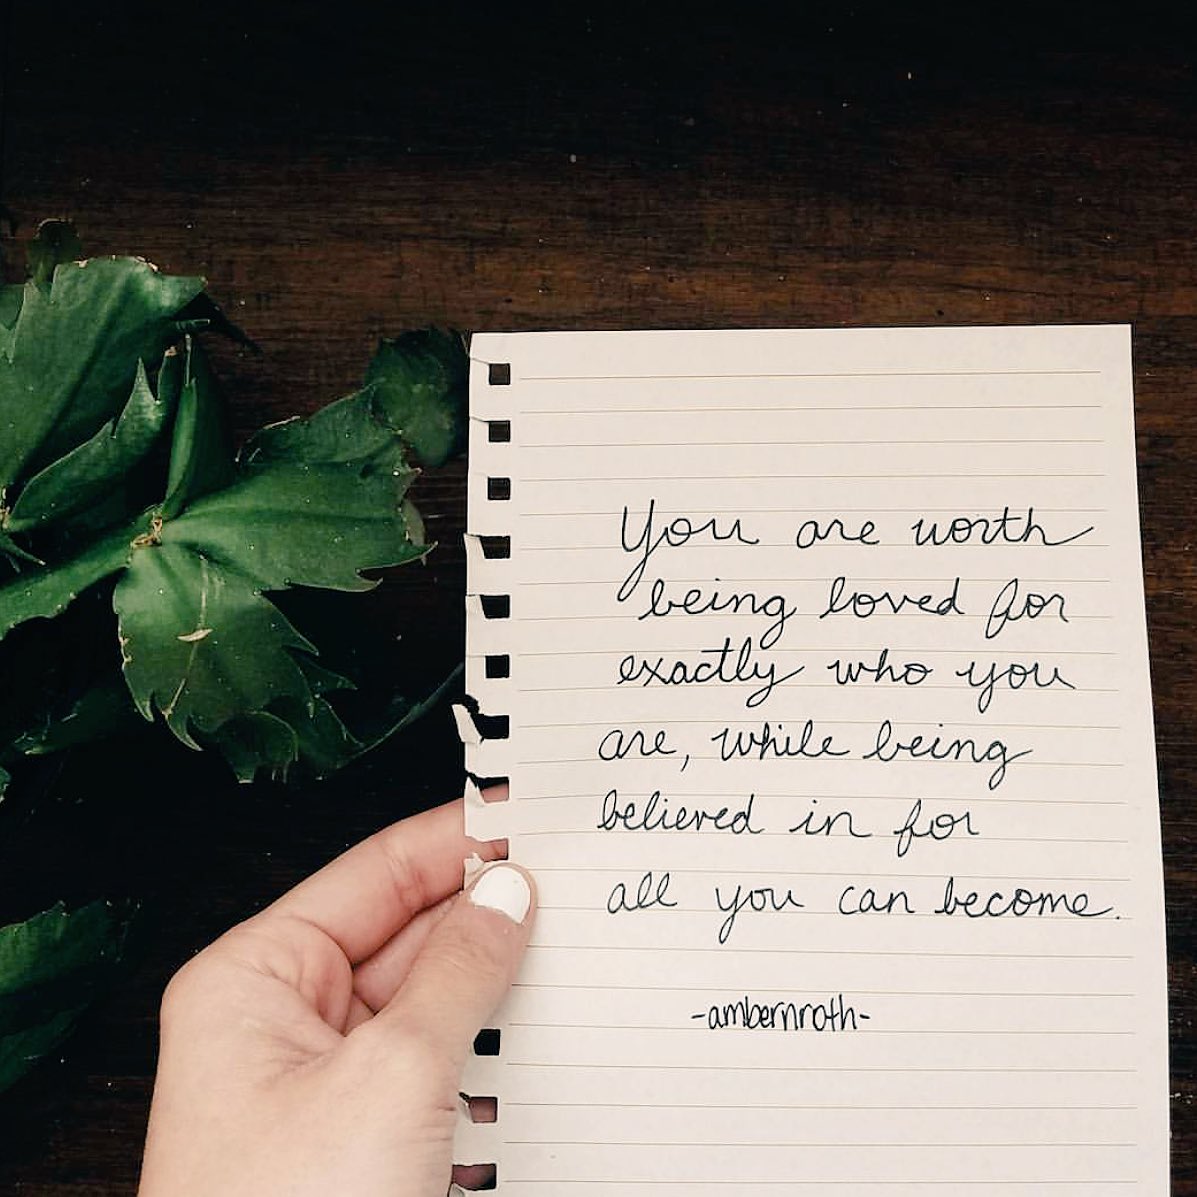 You are worth
being loved for
exactly who you
are, while being
believed in for
all you can become.
-ambernroth-